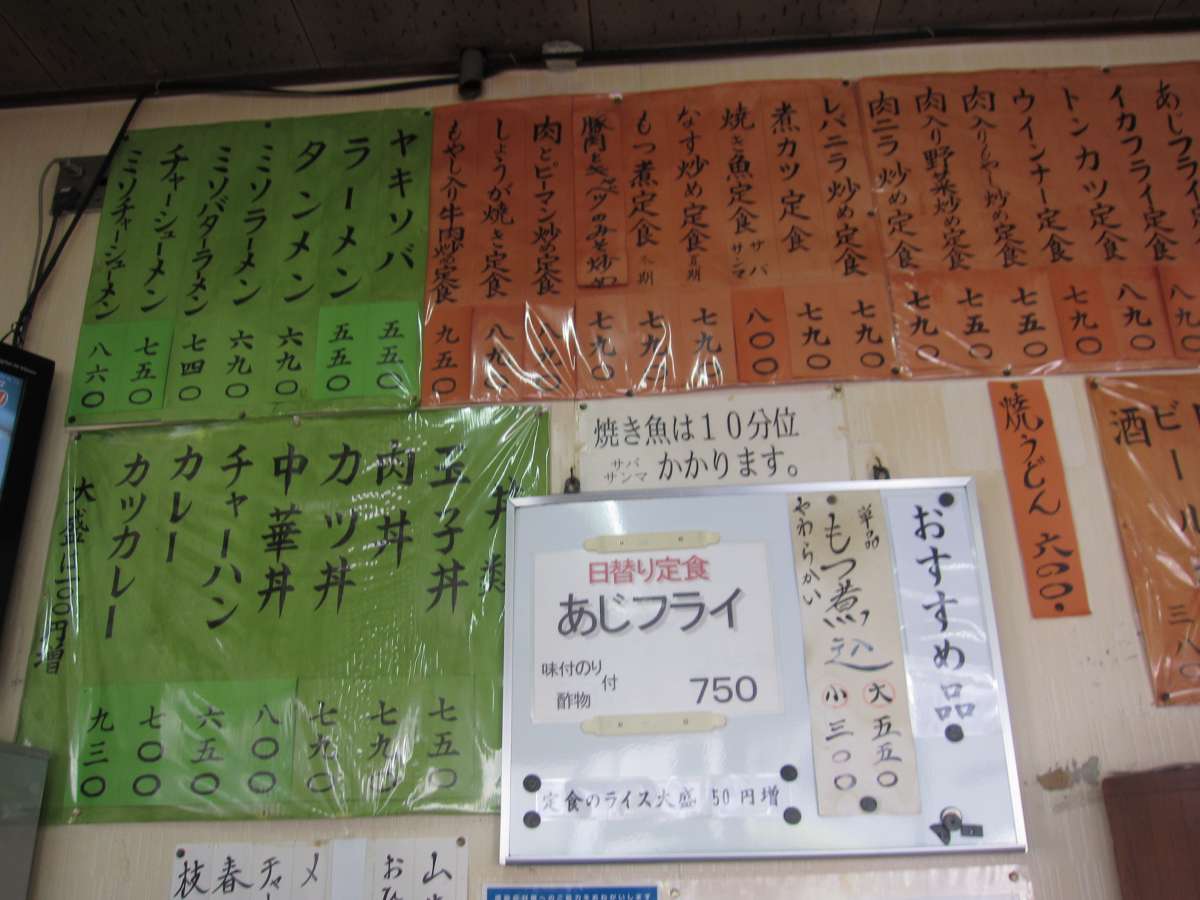 あじフライ
八九〇
イカフライ定食
八九〇
トンカツ定食
七九〇
ウインナー定食
七五〇
肉入りもやし炒め定食
七五〇
肉入り野菜炒め定食
七九〇
肉ニラ炒め定食
レバニラ炒め定食
七九〇
煮カツ定食
七九〇
焼き魚定食 サバ サンマ
八〇〇
なす炒め定食 夏期
七九〇
もつ煮定食 冬期
七九〇
豚肉とキャベツのみそ炒め
七九〇
肉とピーマン炒め定食
八九〇
しょうが焼き定食
八九〇
もやし入り牛肉炒め定食
九五〇
ヤキソバ
五五〇
ラーメン
五五〇
タンメン
六九〇
ミソラーメン
六九〇
ミソバターラーメン
七四〇
チャーシューメン
七五〇
ミソチャーシューメン
八六〇
丼類
玉子丼
七五〇
肉丼
七九〇
カツ丼
七九〇
中華丼
八〇〇
チャーハン
六五〇
カレー
七〇〇
カツカレー
九三〇
大盛は100円増
焼き魚は10分位
サバ
サンマ
かかります。
焼うどん 六〇〇.
ビール
三八〇
酒
おすすめ品
単品
もつ煮込
やわらかい
大 五五〇
小 三〇〇
日替り定食
あじフライ
味付のり
付
酢物
750
定食のライス大盛 50円増
山
おひ
メ
チャ
春
枝